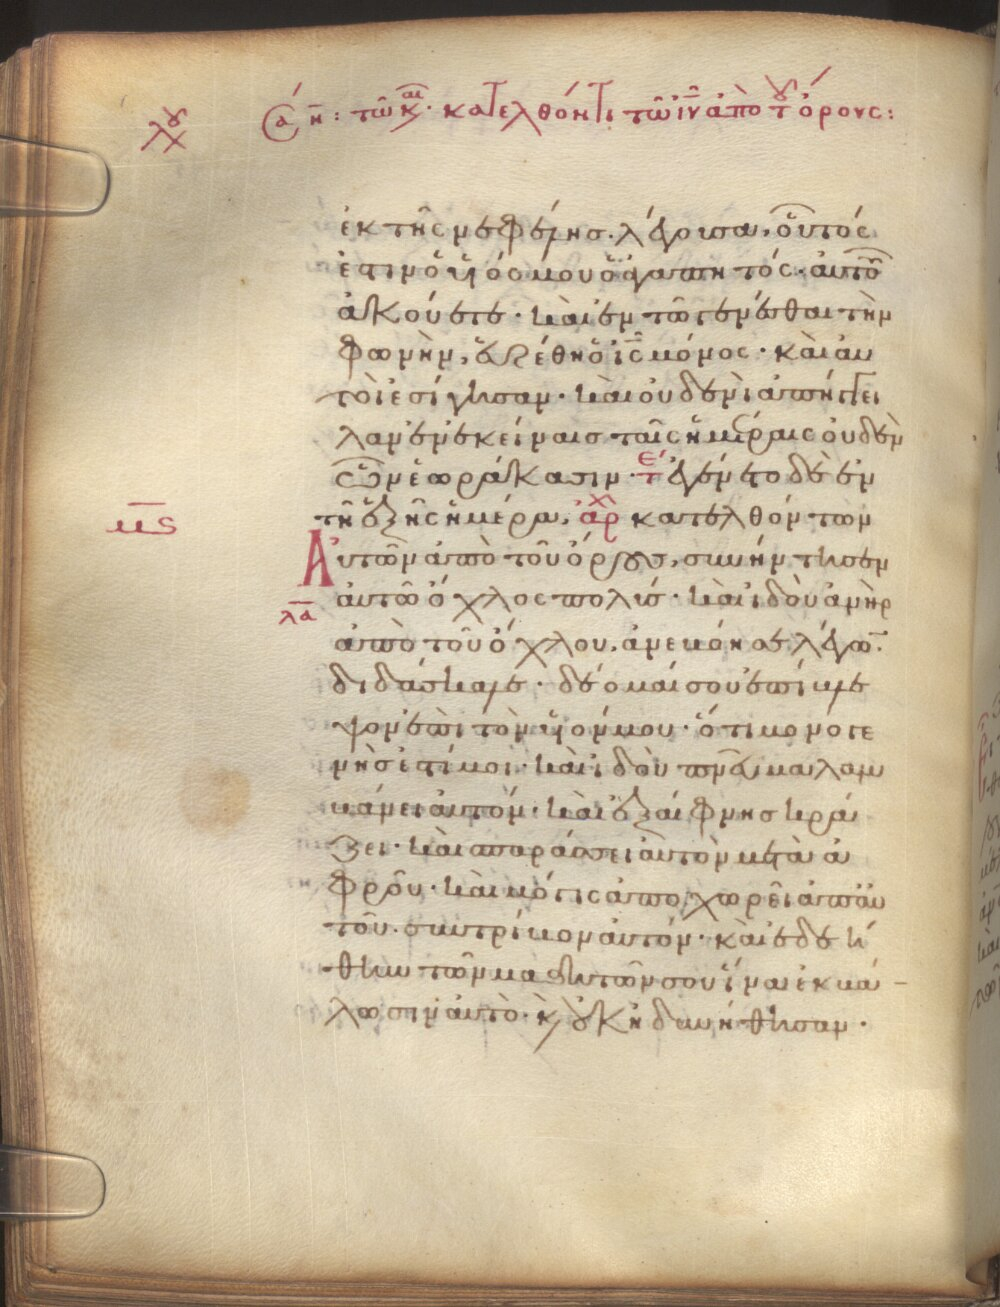 Σα ν̄: τῶ κ αι · κατελθόντι τῶ ιῦ ἀπὸ τοῦ ὄρους:
ἐκ τῆς νεφέλης. λέγουσα, οὗτός
ἐστιν ὁ υἱός μου ὁ ἀγαπητός· αὐτοῦ
ἀκούετε· καὶ ἐν τῶ γενέσθαι τὴν
φωνὴν, εὑρέθη ὁ ις̄ μόνος· καὶ αυ
τοὶ ἐσίγησαν· καὶ οὐδενὶ ἀπήγγει
λαν ἐν ἐκείναις ταῖς ἡμέραις οὐδὲν
ὧν ἑωράκασιν· τε ἐγένετο δὲ ἐν
μ̄ς̄ τῆ ἑξῆς ἡμέρα, ἀρχ κατελθόντων
Αὐτῶν ἀπὸ τοῦ ὄρους, συνήντησεν
λ̄ᾱ αὐτῶ ὄχλος πολύς· καὶ ἰδοὺ ἀνὴρ
ἀπὸ τοῦ ὄχλου, ἀνεβόησε λέγω̄.
διδάσκαλε· δέομαί σου ἐπίβλε
ψον ἐπὶ τὸν υἱόν μου· ὅτι μονογε
νὴς ἐστί μοι· καὶ ἰδοὺ πνᾱ λαμ
βάνει αὐτόν· καὶ ἐξαίφνης κρά
ζει· καὶ σπαράσσει αὐτὸν μετὰ ἀ
φροῦ· καὶ μόγις ἀποχωρεῖ ἀπ αὐ
τοῦ. συντρίβον αὐτόν· καὶ ἐδεή
θην τῶν μαθητῶν σου ἵνα ἐκβά
λωσιν αὐτὸ· ϗ οὐκ ἠδυνήθησαν·